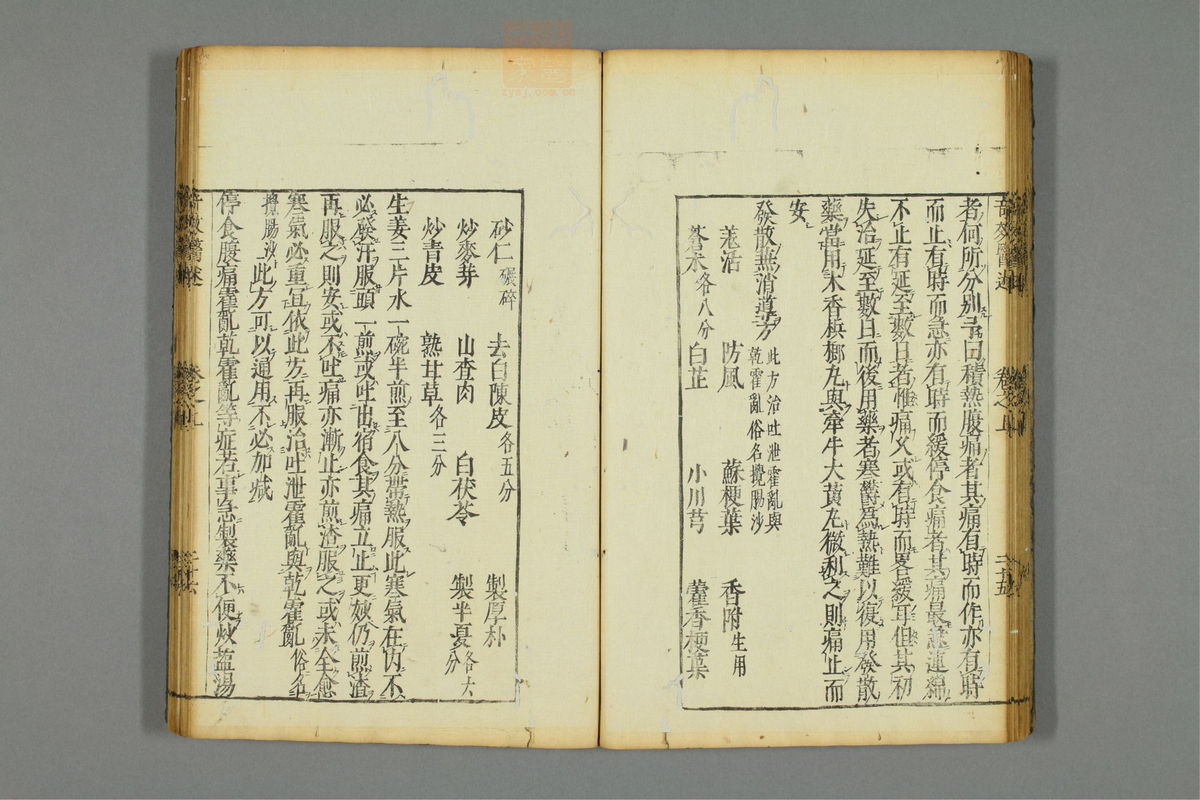 者何所分别予曰積熱腹痛者其痛有時而作亦有時
而止有時而急亦有時而緩停食痛者其痛最急連綿
不止有延至數日者惟痛久或有時而畧緩耳但其初
失治延至數日而後用藥者寒鬱爲熱難以復用發散
藥當用木香檳榔丸與牽牛大黃丸微利之則痛止而
安
發散兼消導方 此方治吐泄霍亂與乾霍亂俗名攪腸沙
羗活 防風 蘇梗葉 香附生用
蒼朮各八分 白芷 小川芎 藿香梗葉
砂仁碾碎 去白陳皮各五分 製厚朴
炒麥芽 山查肉 白茯苓 製半夏各六分
炒青皮 熟甘草各三分
生姜三片水一碗半煎至八分帶熱服此寒氣在内不
必發汗服頭一煎或吐出宿食其痛立止更妙仍煎渣
再服之則安或不吐痛亦漸止亦煎渣服之或未全愈
寒氣必重宜依此方再服治吐泄霍亂與乾霍亂俗名
攪腸沙此方可以通用不必加减
停食腹痛霍亂乾霍亂等症若事急製藥不便炒盐湯
奇效醫述
卷之上
二十五
奇效醫述
卷之上
二十六
zysj.com.cn